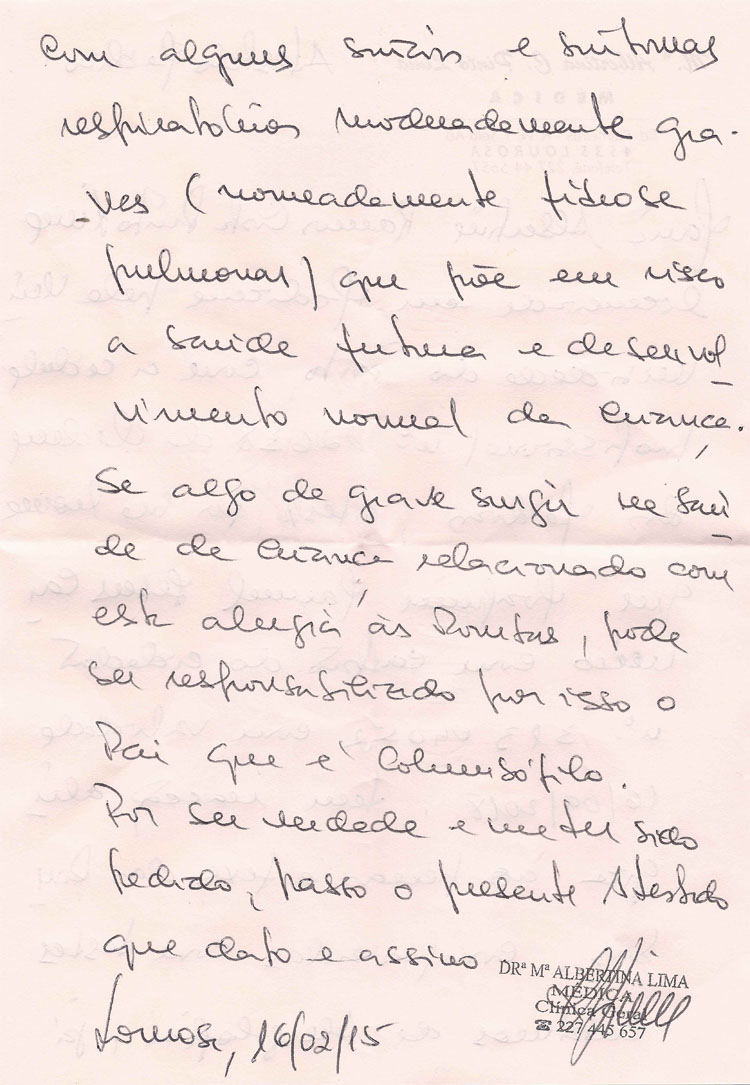 com alguns sinais e sintomas
respiratórios moderadamente gra-
-ves (nomeadamente fibrose
pulmonar) que põe em risco
a saúde futura e desenvol
_
vimento normal da criança.
Se algo de grave surgir na saú
_
de da criança relacionado com
esta alergia às Pombas, pode
ser responsabilizado por isso o
Pai que é Columbófilo.
Por ser verdade e me ter sido
pedido, passo o presente Atestado
que dato e assino
DRª Mª ALBERTINA LIMA
MÉDICA
Clínica Geral
☎ 227 445 657
16/02/15